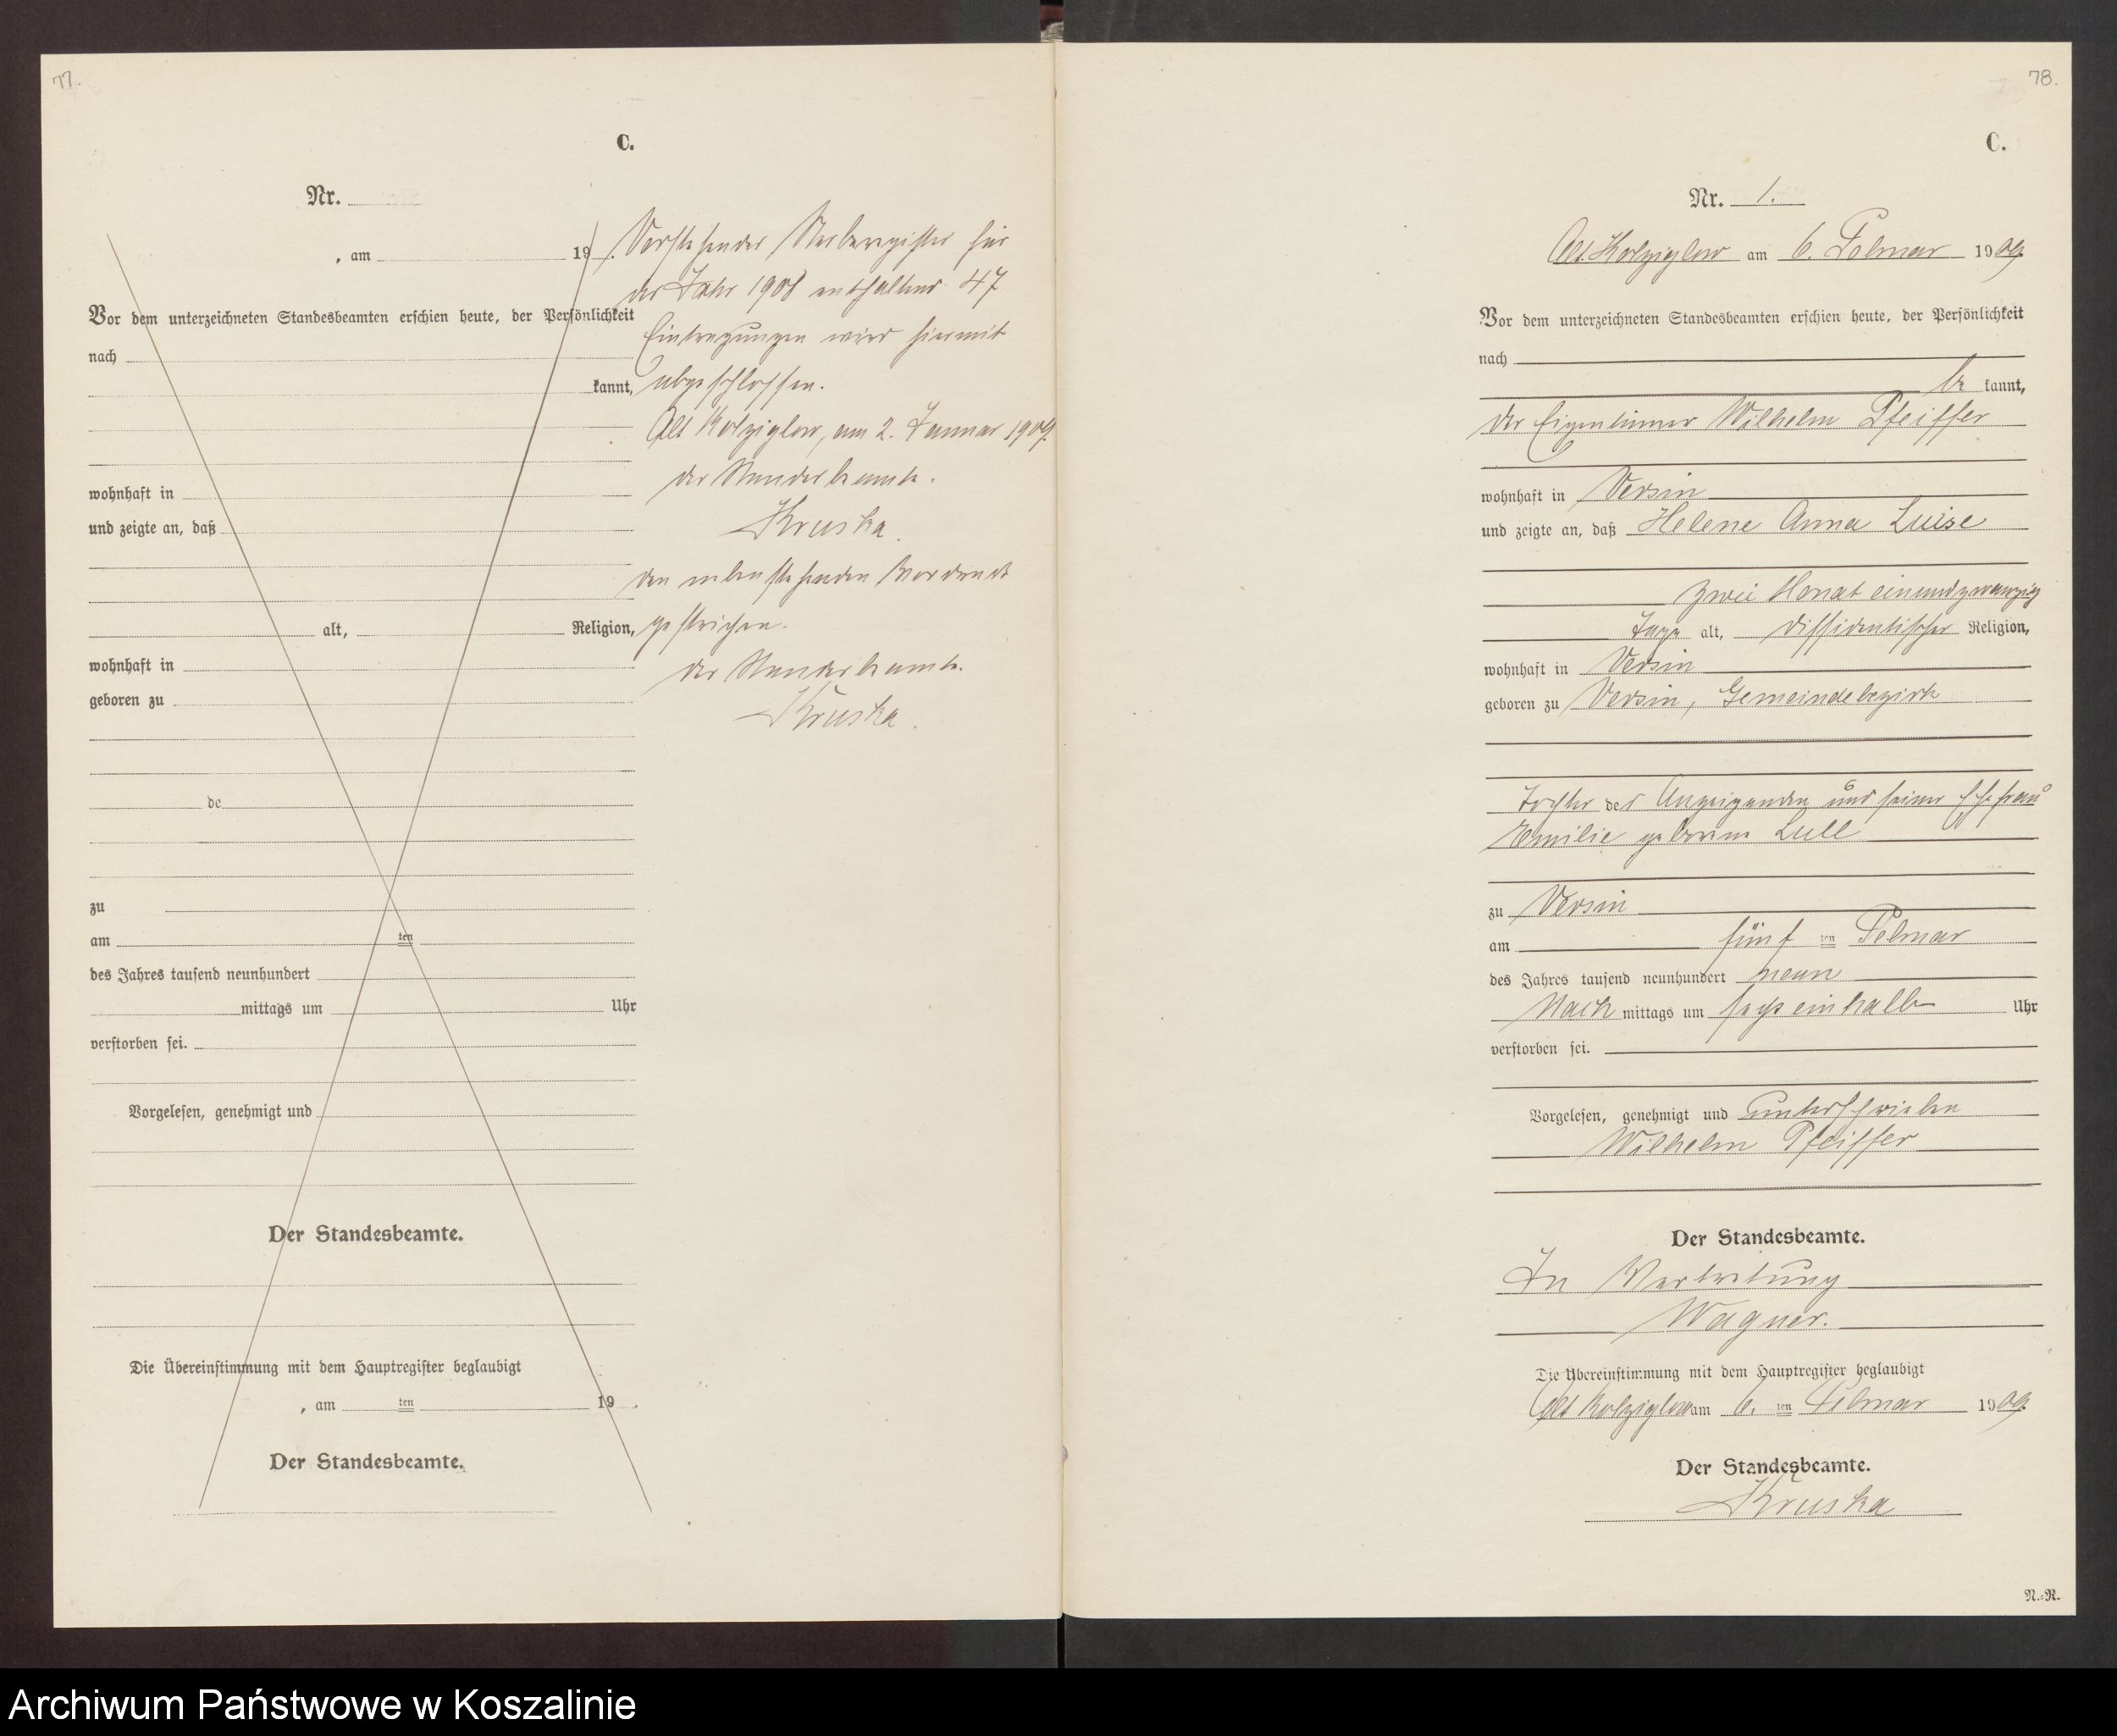 77.
C.
Nr.
, am 19
Vor dem unterzeichneten Standesbeamten erschien heute, der Persönlichkeit
nach
kannt,
wohnhaft in
und zeigte an, daß
alt, Religion,
wohnhaft in
geboren zu
de
zu
am ten
des Jahres tausend neunhundert
mittags um Uhr
verstorben sei.
Vorgelesen, genehmigt und
Der Standesbeamte.
Die Übereinstimmung mit dem Hauptregister beglaubigt
, am ten 19
Der Standesbeamte.
Vorstehendes Sterberegister für
das Jahr 1908 enthaltend 47
Eintragungen wird hiermit
abgeschlossen.
Alt Kolziglow, am 2. Januar 1909.
Der Standesbeamte.
Kruska.
Den nebenstehenden Vordruck
gestrichen.
Der Standesbeamte.
Kruska.
78.
C.
Nr. 1.
Alt. Kolziglow am 6. Februar 1909.
Vor dem unterzeichneten Standesbeamten erschien heute, der Persönlichkeit
nach
be kannt,
der Eigentümer Wilhelm Pfeiffer
wohnhaft in Versin
und zeigte an, daß Helene Anna Luise
zwei Monat einundzwanzig
Tage alt, dissidentischer Religion,
wohnhaft in Versin
geboren zu Versin, Gemeindebezirk
Tochter des Anzeigenden und seiner Ehefrau
Emilie geborene Lull
zu Versin
am fünf ten Februar
des Jahres tausend neunhundert neun
Nach mittags um sechseinhalb Uhr
verstorben sei.
Vorgelesen, genehmigt und unterschrieben
Wilhelm Pfeiffer
Der Standesbeamte.
In Vertretung
Wagner.
Die Übereinstimmung mit dem Hauptregister beglaubigt
Alt Kolziglow am 6. ten Februar 1909.
Der Standesbeamte.
Kruska
N.-R.
Archiwum Państwowe w Koszalinie